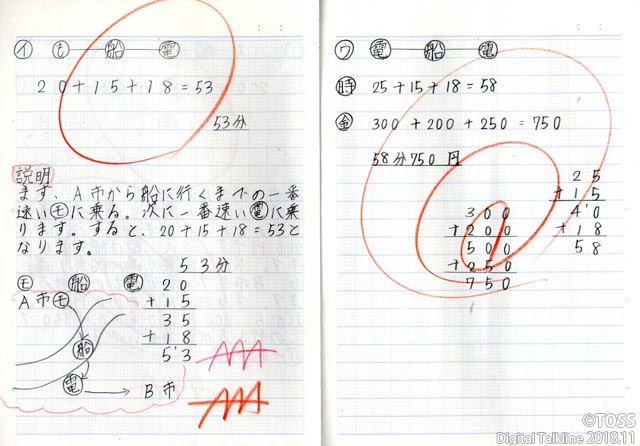 ㋑ ㋲ ㊋船 電
20+15+18=53
53分
説明
まず、A市から船に行くまでの一番
速い㋲に乗る。次に一番速い電に乗
ります。すると、20+15+18=53と
なります。
53分
㋲ 船 電
A市㋲
船
電 → B市
20
+15
35
+18
53
AAA
AAA
㋒ 電 船 電
時 25+15+18=58
金 300+200+250=750
58分750円
300
+200
500
+250
750
25
+15
40
+18
58
©TOSS
Digital Talkline 2018.11